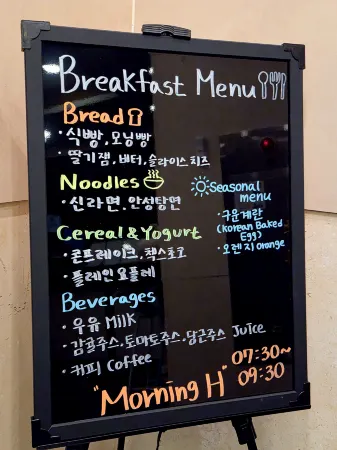 Breakfast Menu
Bread
· 식빵, 모닝빵
· 딸기잼, 버터, 슬라이스 치즈
Noodles
· 신라면, 안성탕면
Seasonal menu
· 구운계란
(Korean Baked Egg)
· 오렌지 orange
Cereal & Yogurt
· 콘프레이크, 첵스초코
· 플레인요플레
Beverages
· 우유 Milk
· 감귤주스, 토마토주스, 당근주스 Juice
· 커피 Coffee
"Morning H" 07:30~
09:30